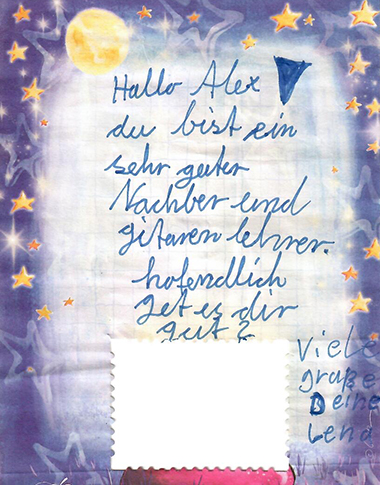 Hallo Alex
du bist ein
sehr guter
Nachber und
gitaren lehrer.
hofendlich
get es dir
gut?
Viele
grüße
Deine
Lena